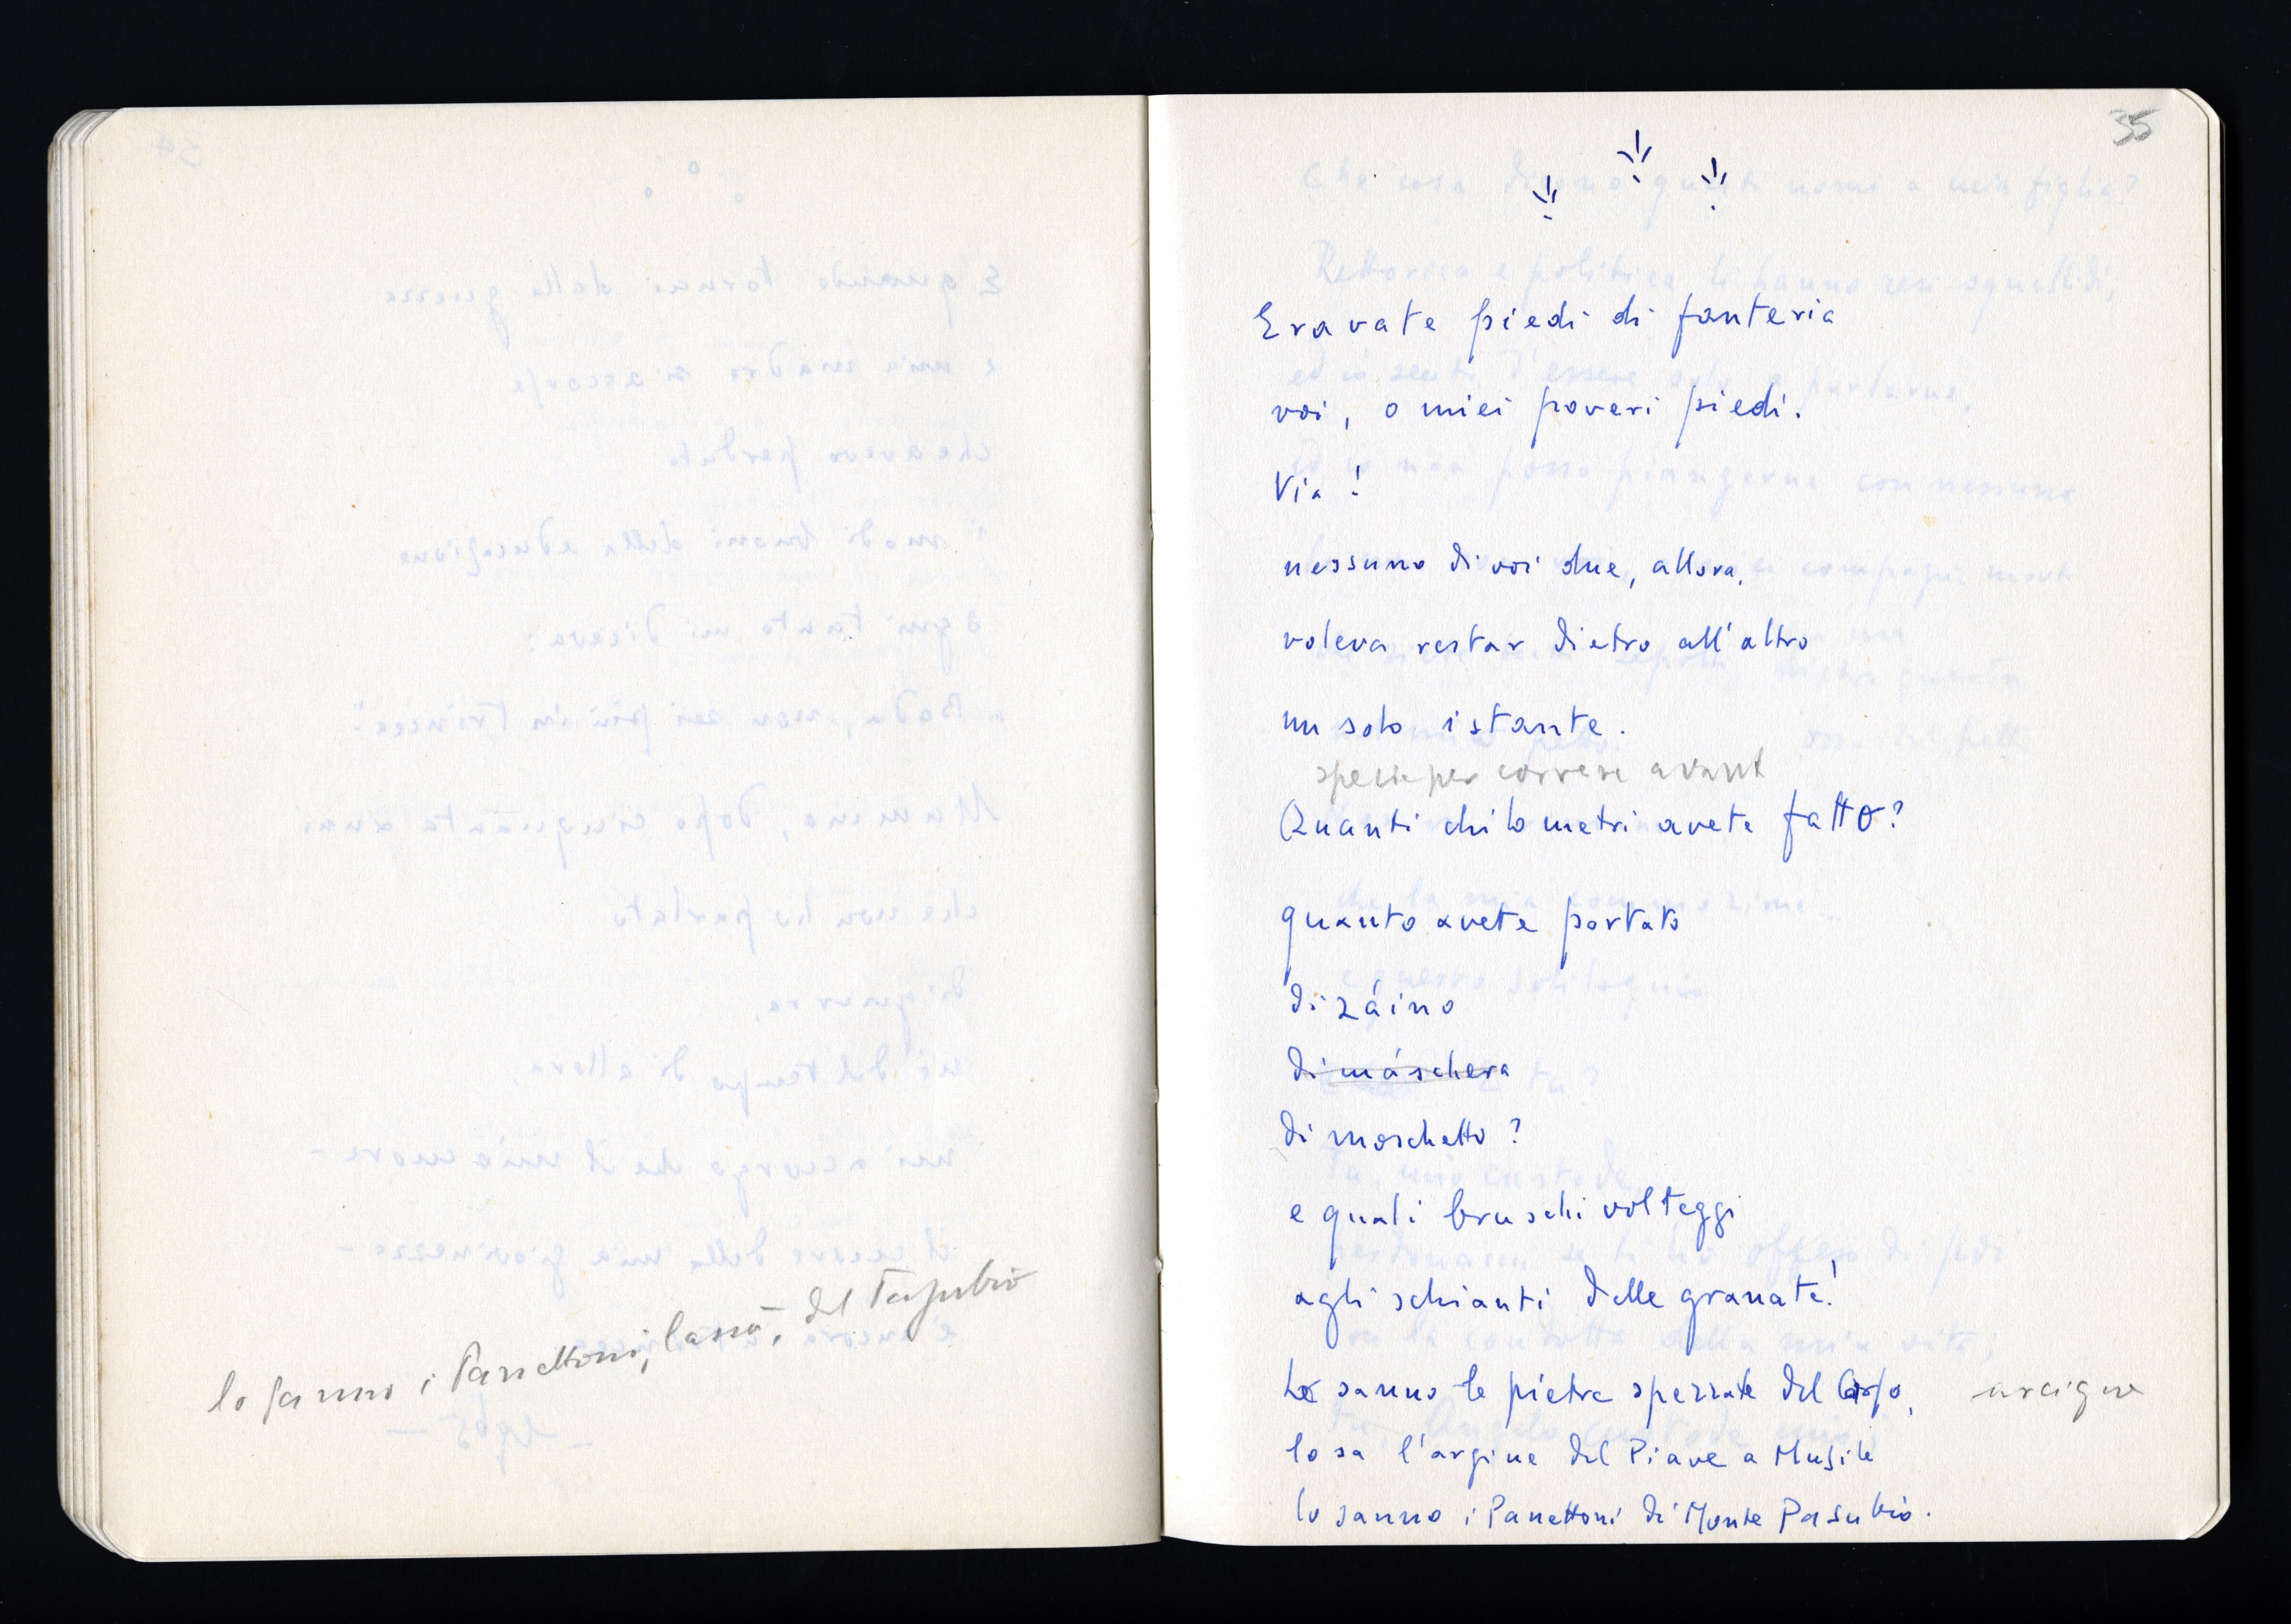 lo sanno i Panettoni, lassù, del Pasubio
35
Eravate piedi di fanteria
voi, o miei poveri piedi.
Via!
nessuno di voi due, allora,
voleva restar dietro all'altro
un solo istante.
specie per correre avanti
Quanti chilometri avete fatto?
quanto avete portato
di záino
di máschera
di moschetto?
e quali bruschi volteggi
agli schianti delle granate!
Lo sanno le pietre spezzate del Carso, arcigne
lo sa l'argine del Piave a Musile
lo sanno i Panettoni di Monte Pasubio.